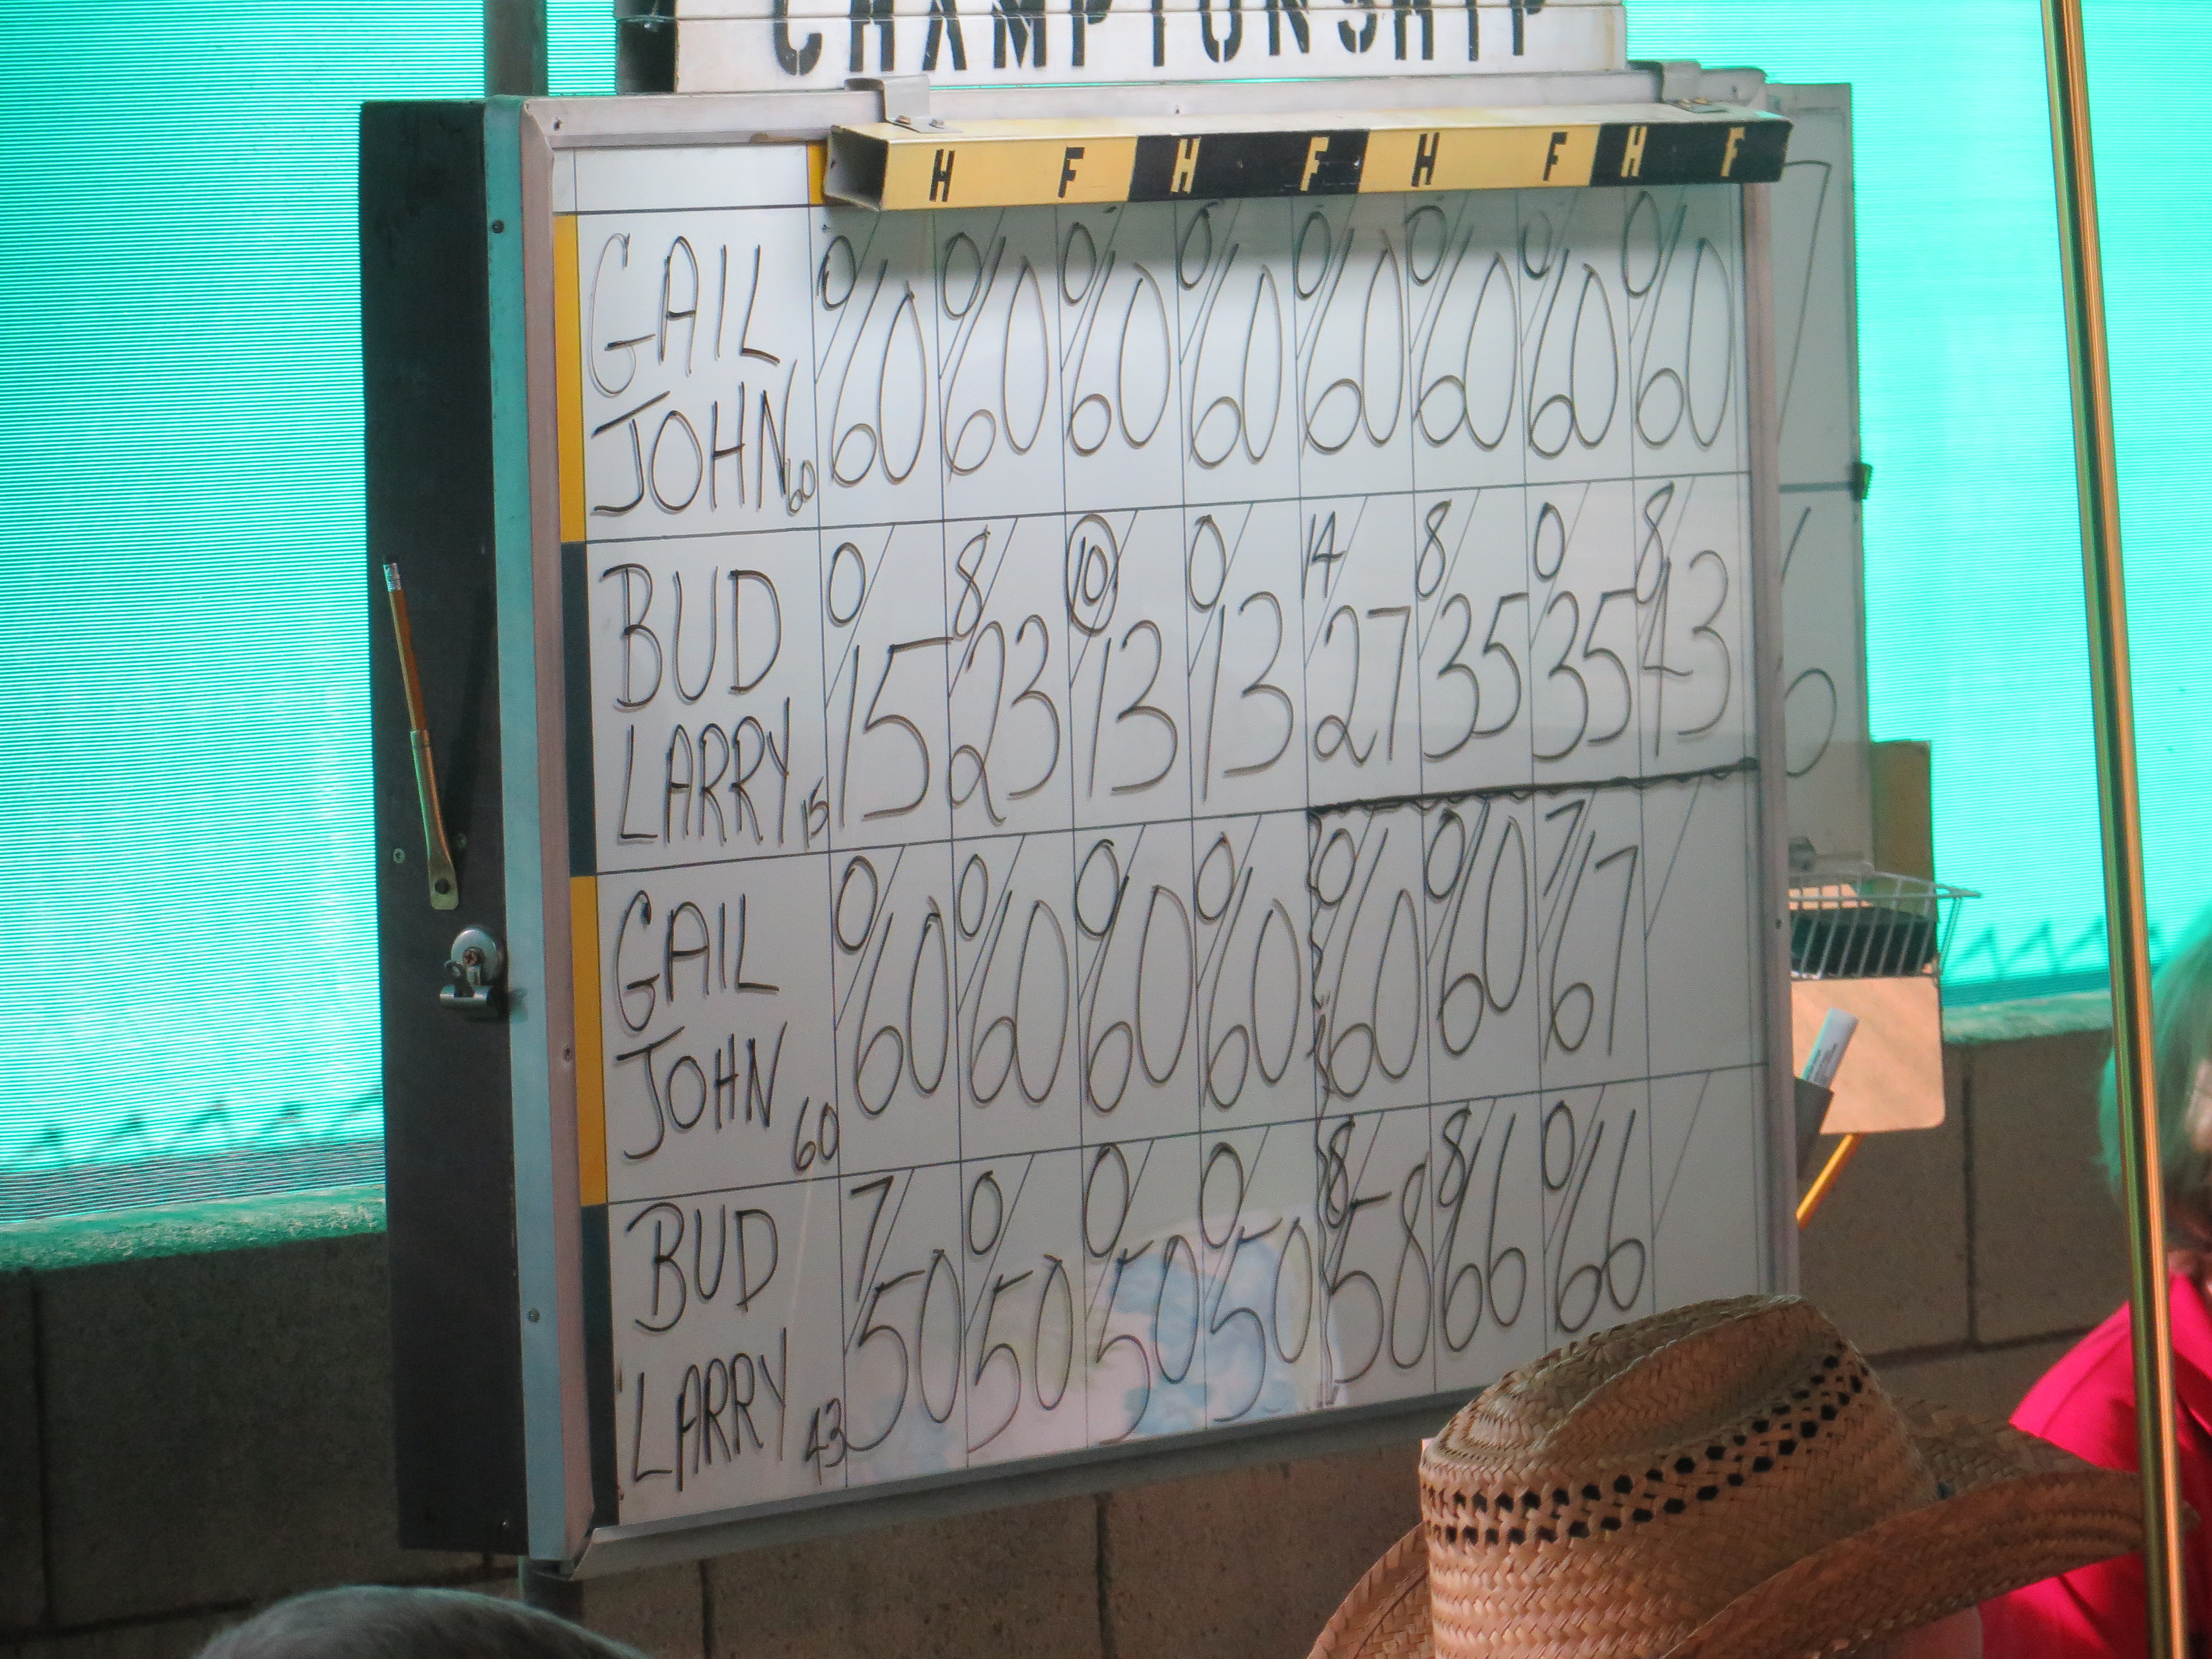 CHAMPIONSHIP
H F H F H F H F
GAIL 0 0 0 0 0 0 0 0
JOHN 60 60 60 60 60 60 60 60 60
BUD 0 8 10 0 14 8 0 8
LARRY 15 15 23 13 13 27 35 35 43
GAIL 0 0 0 0 0 0 7
JOHN 60 60 60 60 60 60 60 67
BUD 7 0 0 0 8 8 0
LARRY 43 50 50 50 50 58 66 66
7
6